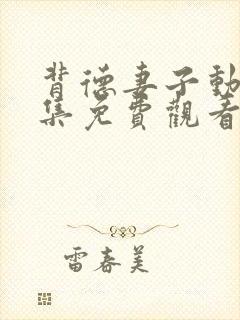 背德妻子動
集免費觀看
雷春美